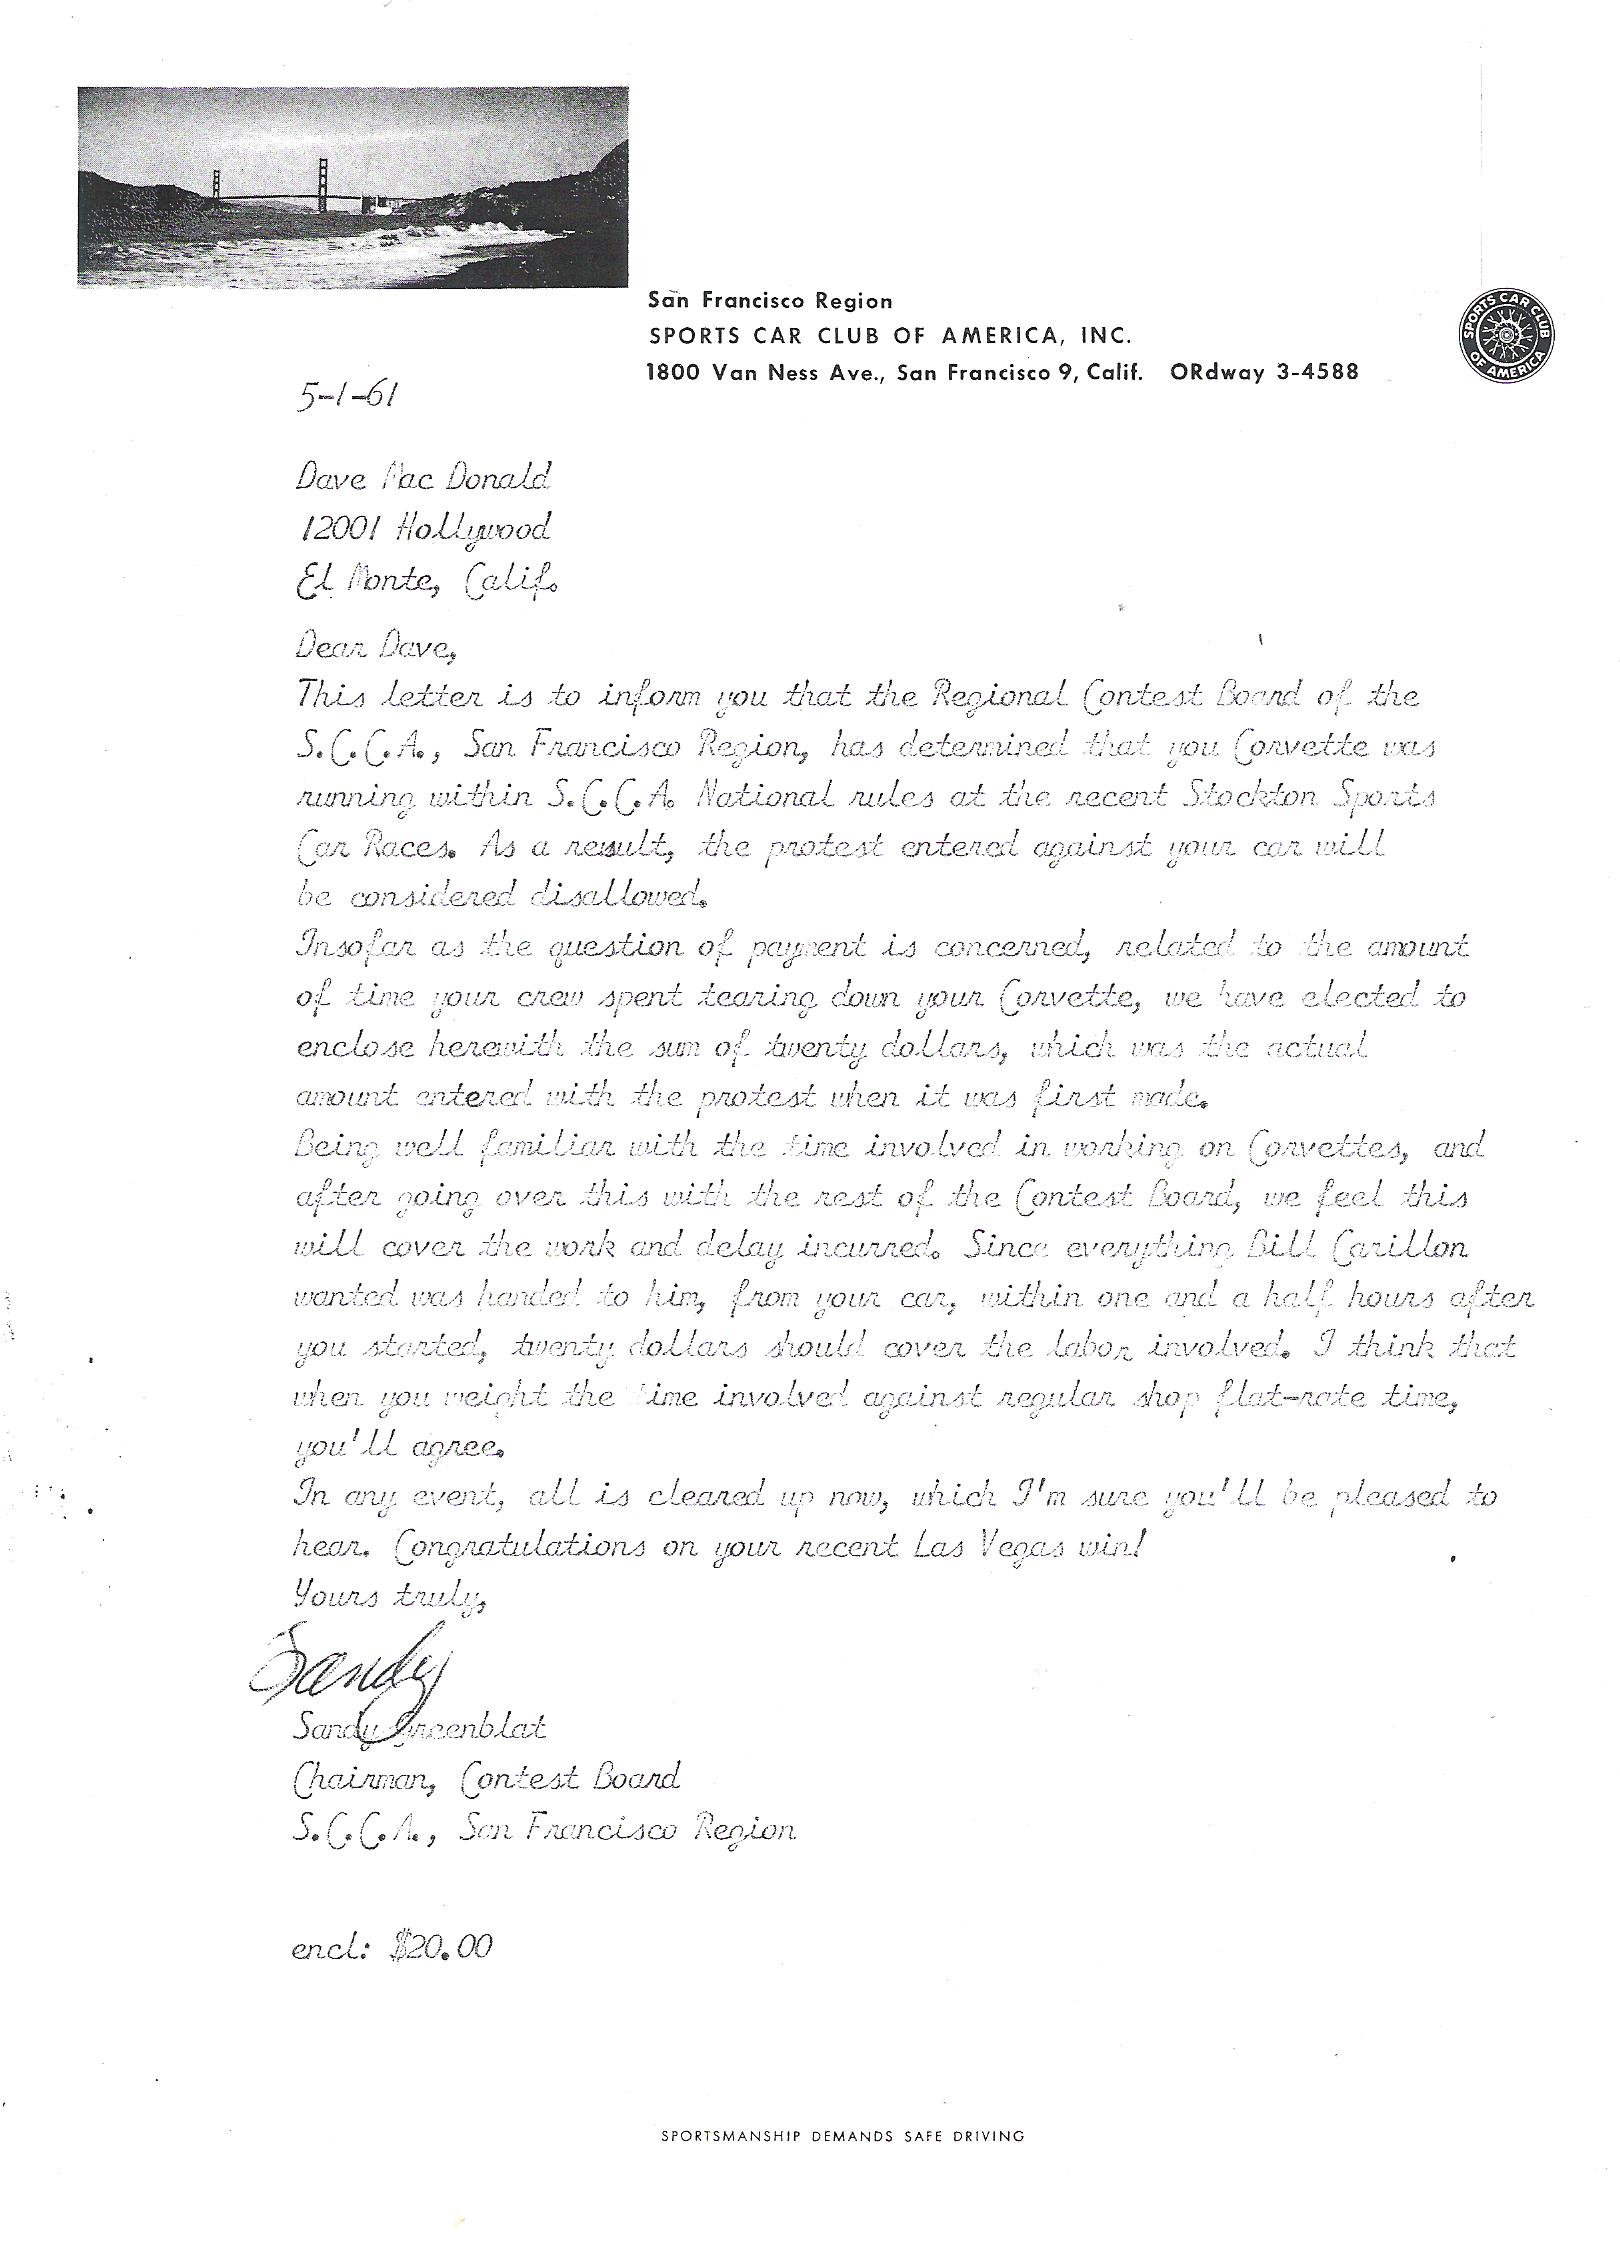 San Francisco Region
SPORTS CAR CLUB OF AMERICA, INC.
1800 Van Ness Ave., San Francisco 9, Calif. ORdway 3-4588
SPORTS CAR CLUB OF AMERICA
5-1-61
Dave Mac Donald
12001 Hollywood
El Monte, Calif.
Dear Dave,
This letter is to inform you that the Regional Contest Board of the
S.C.C.A., San Francisco Region, has determined that you Corvette was
running within S.C.C.A. National rules at the recent Stockton Sports
Car Races. As a result, the protest entered against your car will
be considered disallowed.
Insofar as the question of payment is concerned, related to the amount
of time your crew spent tearing down your Corvette, we have elected to
enclose herewith the sum of twenty dollars, which was the actual
amount entered with the protest when it was first made.
Being well familiar with the time involved in working on Corvettes, and
after going over this with the rest of the Contest Board, we feel this
will cover the work and delay incurred. Since everything Bill Carillon
wanted was handed to him, from your car, within one and a half hours after
you started, twenty dollars should cover the labor involved. I think that
when you weight the time involved against regular shop flat-rate time,
you'll agree.
In any event, all is cleared up now, which I'm sure you'll be pleased to
hear. Congratulations on your recent Las Vegas win!
Yours truly,
Sandy
Sandy Greenblat
Chairman, Contest Board
S.C.C.A., San Francisco Region
encl: $20.00
SPORTSMANSHIP DEMANDS SAFE DRIVING